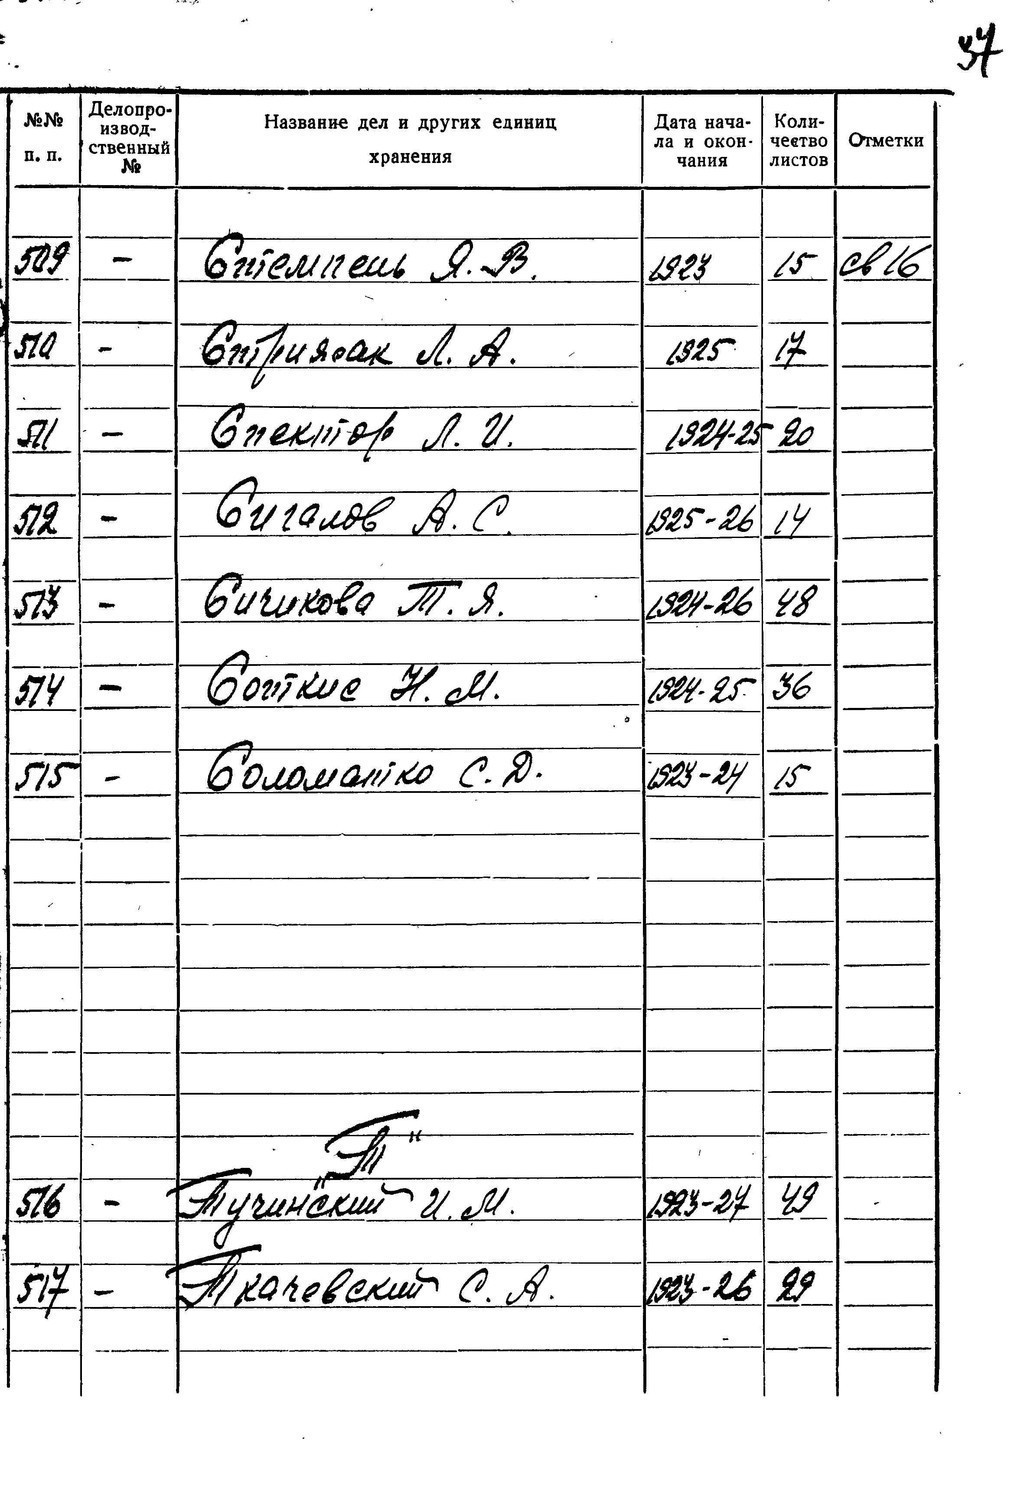 37
№№ п. п. Делопроизводственный № Название дел и других единиц хранения Дата начала и окончания Количество листов Отметки
509 - Стемпень Я. В. 1923 15 св 16
510 - Л. А. 1925 17
511 - Спектор Л. И. 1924-25 20
512 - Сигалов А. С. 1925-26 14
513 - Сичикова Т. Я. 1924-26 48
514 - Соткис Н. М. 1924-25 36
515 - Соломатко С. Д. 1923-24 15
„Т"
516 - Тучинский И. М. 1923-27 49
517 - Ткачевский С. А. 1923-26 29